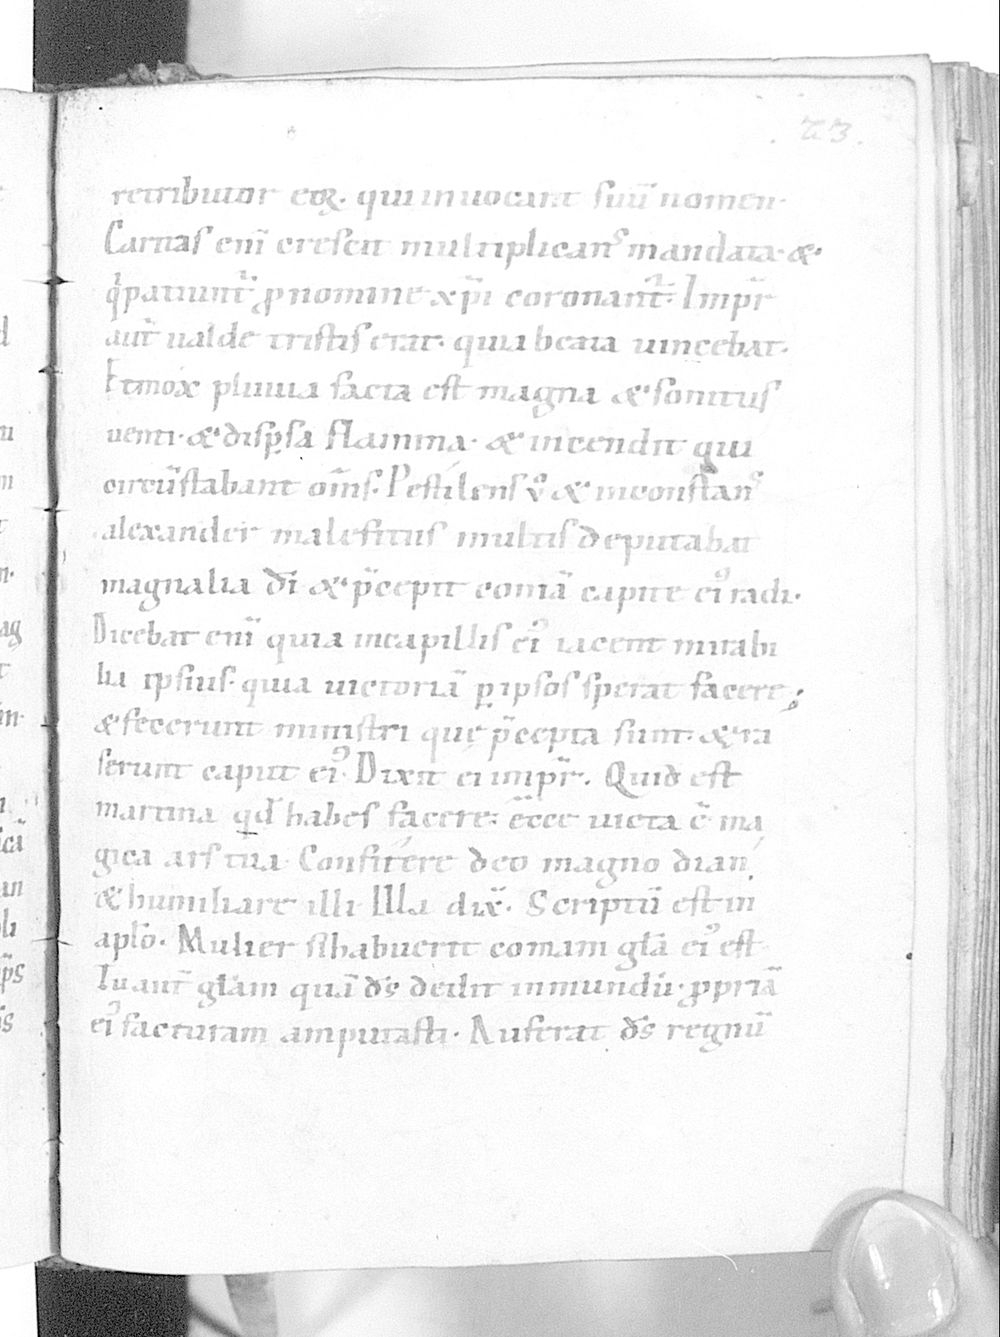 23.
retribuior eoꝝ. qui inuocant suū nomen.
Caritas enī crescit multiplicans mandata. &
q̇ patiunt᷑ ꝓ nomine xp̄i coronant᷑. Imp̄r
aut̄ ualde tristis erat. quia beata uincebat.
Et mox pluuia facta est magna & sonitus
uenti. & disp̱sa flamma. & incendit qui
circūstabant om̄s. Pestilens ṽ & inconstans
alexander malefitus multis deputabat
magnalia dī & p̄cepit comā capite ei᷒ radi.
Dicebat enī quia incapillis ei᷒ iacent mirabi
lia ipsius. quia uictoriā ꝑ ipsos sperat facere;
& fecerunt ministri quę p̄cepta sunt. & ra
serunt caput ei᷒. Dixit ei imp̄r. Quid est
martina qd̄ habes facere. ecce uicta ē ma
gica ars tua. Confitere deo magno dian
& humiliare illi. Illa dix̄. Scriptū est in
aplō. Mulier si habuerit comam gla̅ ei᷒ est
Tu aut̄ glām quā ds̄ dedit in mundū. ꝓpriā
ei᷒ facturam amputasti. Auferat ds̄ regnū